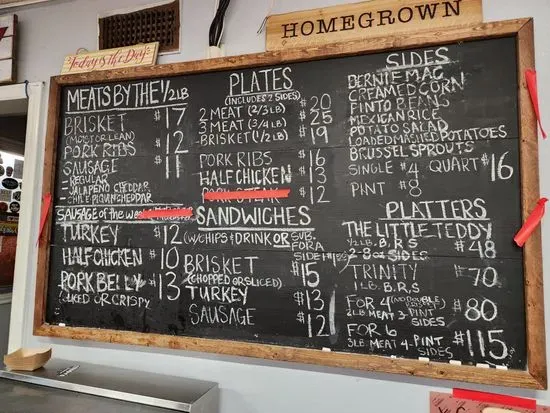 HOMEGROWN
Today is the Day
MEATS BY THE 1/2 LB
BRISKET $17
(MOIST OR LEAN)
PORK RIBS $12
SAUSAGE $11
- REGULAR
- JALAPENO CHEDDAR
- CHILE PIQUIN CHEDDAR
SAUSAGE of the week
TURKEY $12
HALF CHICKEN $10
PORK BELLY $13
CUKED OR CRISPY
PLATES
(INCLUDES 2 SIDES)
2 MEAT (3/4 LB) $20
3 MEAT (3/4 LB) $25
BRISKET (1/2 LB) $19
PORK RIBS $16
HALF CHICKEN $13
PORK STEAK $12
SANDWICHES
(W/CHIPS & DRINK OR SUB. FOR A SIDE
BRISKET $15
(CHOPPED OR SLICED)
TURKEY $13
SAUSAGE $12
SIDES
BERNIE MAC
CREAMED CORN
PINTO BEANS
MEXICAN RICE
POTATO SALAD
LOADED MASHED POTATOES
BRUSSEL SPROUTS
SINGLE $4 QUART $16
PINT $8
PLATTERS
THE LITTLE TEDDY
1/2 LB. B,R,S $48
2-8oz SIDES
TRINITY $70
1 LB. B,R,S
FOR 4 (NO DOUBLE MEAT) $80
2LB. MEAT 3-PINT SIDES
FOR 6 $115
3LB. MEAT 4-PINT SIDES